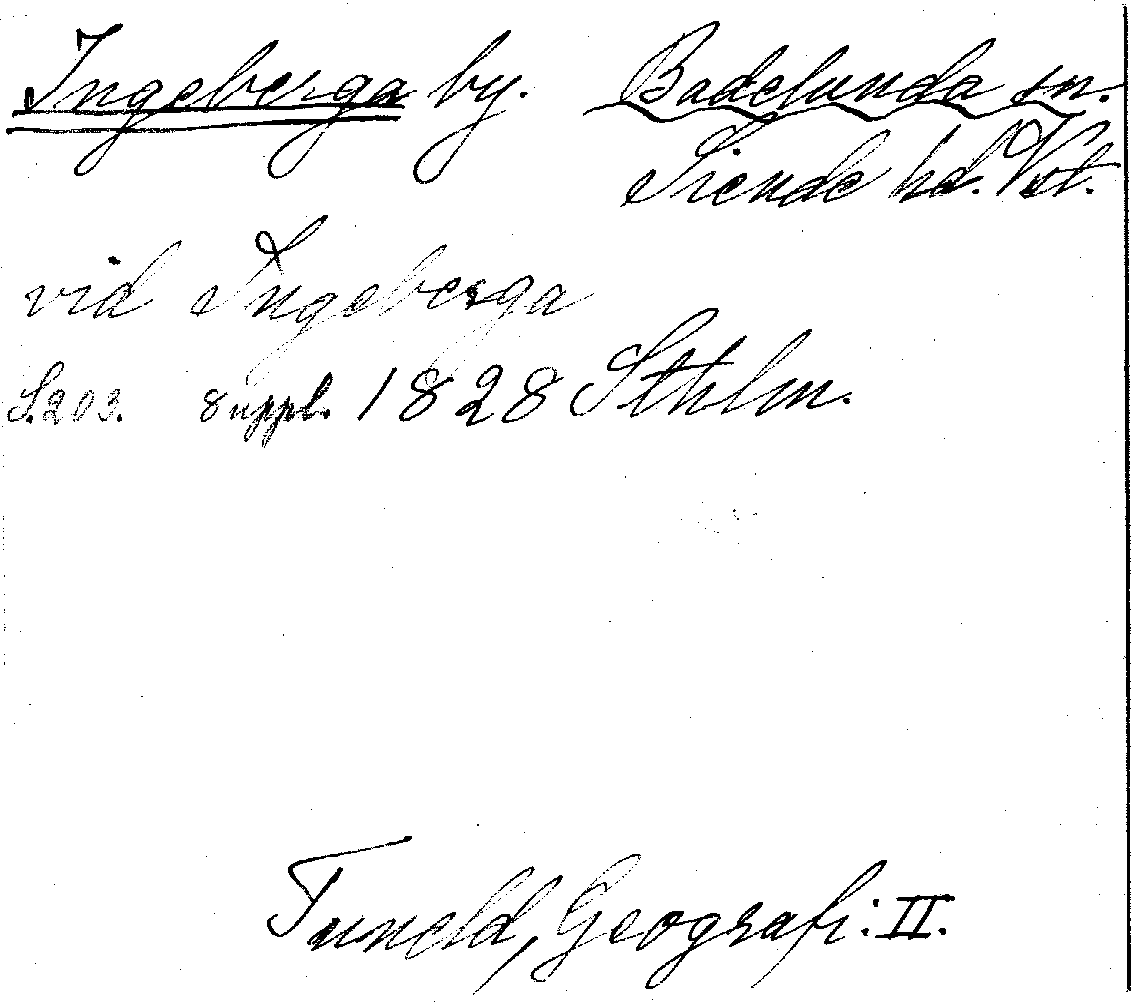 Ingeberga by. Badelunda sn.
Siende hd. Vstm.
vid Ingeberga
S.203. suppl. 1828 Sthlm.
Tuneld, Geografi: II.